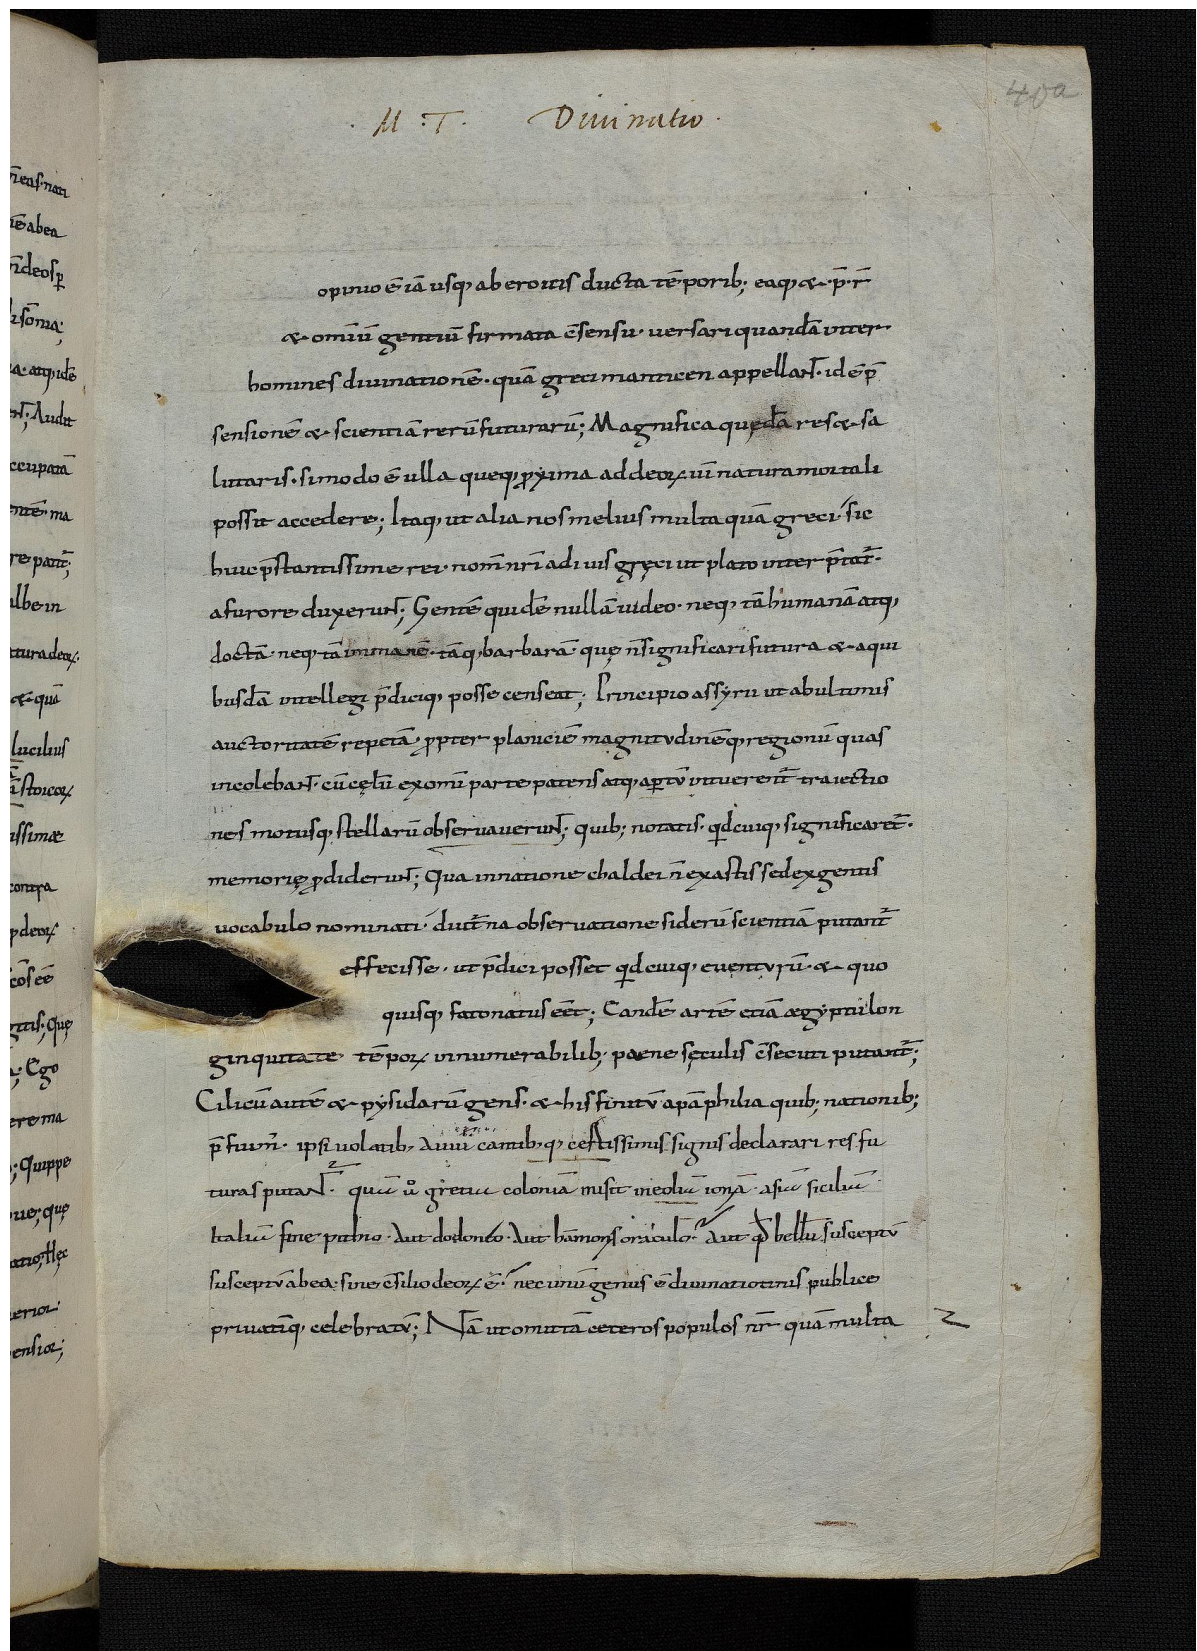 40a
M · T · Diuinatio ·
opinio ē iā usq; ab eroitis ducta tēporib; eaq; & · p̄ · r̄
& omniū gentiū firmata c̄sensu · uersari quandā inter
homines diuinationē · quā greci manticen appellaɴт̄ · id ē p̄
sensionē & scientiā rerū futurarū; Magnifica quędā res & sa
lutaris · si modo ē ulla queq; p̱xima ad deoꝝ uī natura mortali
possit accedere; Itaq; ut alia nos melius multa quā greci · sic
huic p̄stantissime rei · nom̄ nr̄i a diuis gręci ut plato inter p̄tat᷑ ·
a furore duxeruɴт̄; Gentē quidē nullā uideo · neq; tā humanā atq;
doctā · neq; tā inmanē · tāq; barbarā · quę n̄ significari futura & a qui
busdā intellegi p̄diciq; posse censeat; Principio assyrii ut ab ultimis
auctoritatē repetā · p̱pter planiciē magnitudinēq; regionū quas
incolebaɴт̄ · cū cęlū ex omī parte patens atq; aꝑtū intuerent᷑ traiectio
nes motusq; stellarū obseruaueruɴт̄; quib; notatis · qd̄ cuiq; significaret᷑ ·
memorię p̱diderunт̄; Qua in natione chaldei n̄ ex astis sed ex gentis
uocabulo nominati · diut᷑na obseruatione siderū scientiā putant᷑
effecisse · ut p̄dici posset qd̄ cuiq; euenturū · & quo
quisq; fato natus eēt; Eandē artē etiā ægyptii lon
ginquitate tēpoꝝ innumerabilib; paene sęculis c̄secuti putant᷑;
Cilicū autē & pysidarū gens · & his finitū apāphilia quib; nationib;
p̄fuim̄ · ipsi uolatib; Auiū cantib; q; ceRtissimis signis declarari res fu
turas putaɴт̄ · quā ů gretia coloniā misit in eoliā ioniā · asiā siciliā
Italiā sine pithio · Aut dodoneo · Aut hāmonis oraculo · Aut qd̄ bellū susceptū
susceptū ab ea · sine c̄silio deoꝝ ē · nec unū genus ē diuinationis publice
priuatīq; celebratū; Nā ut omittā ceteros populos nr̄ quā multa